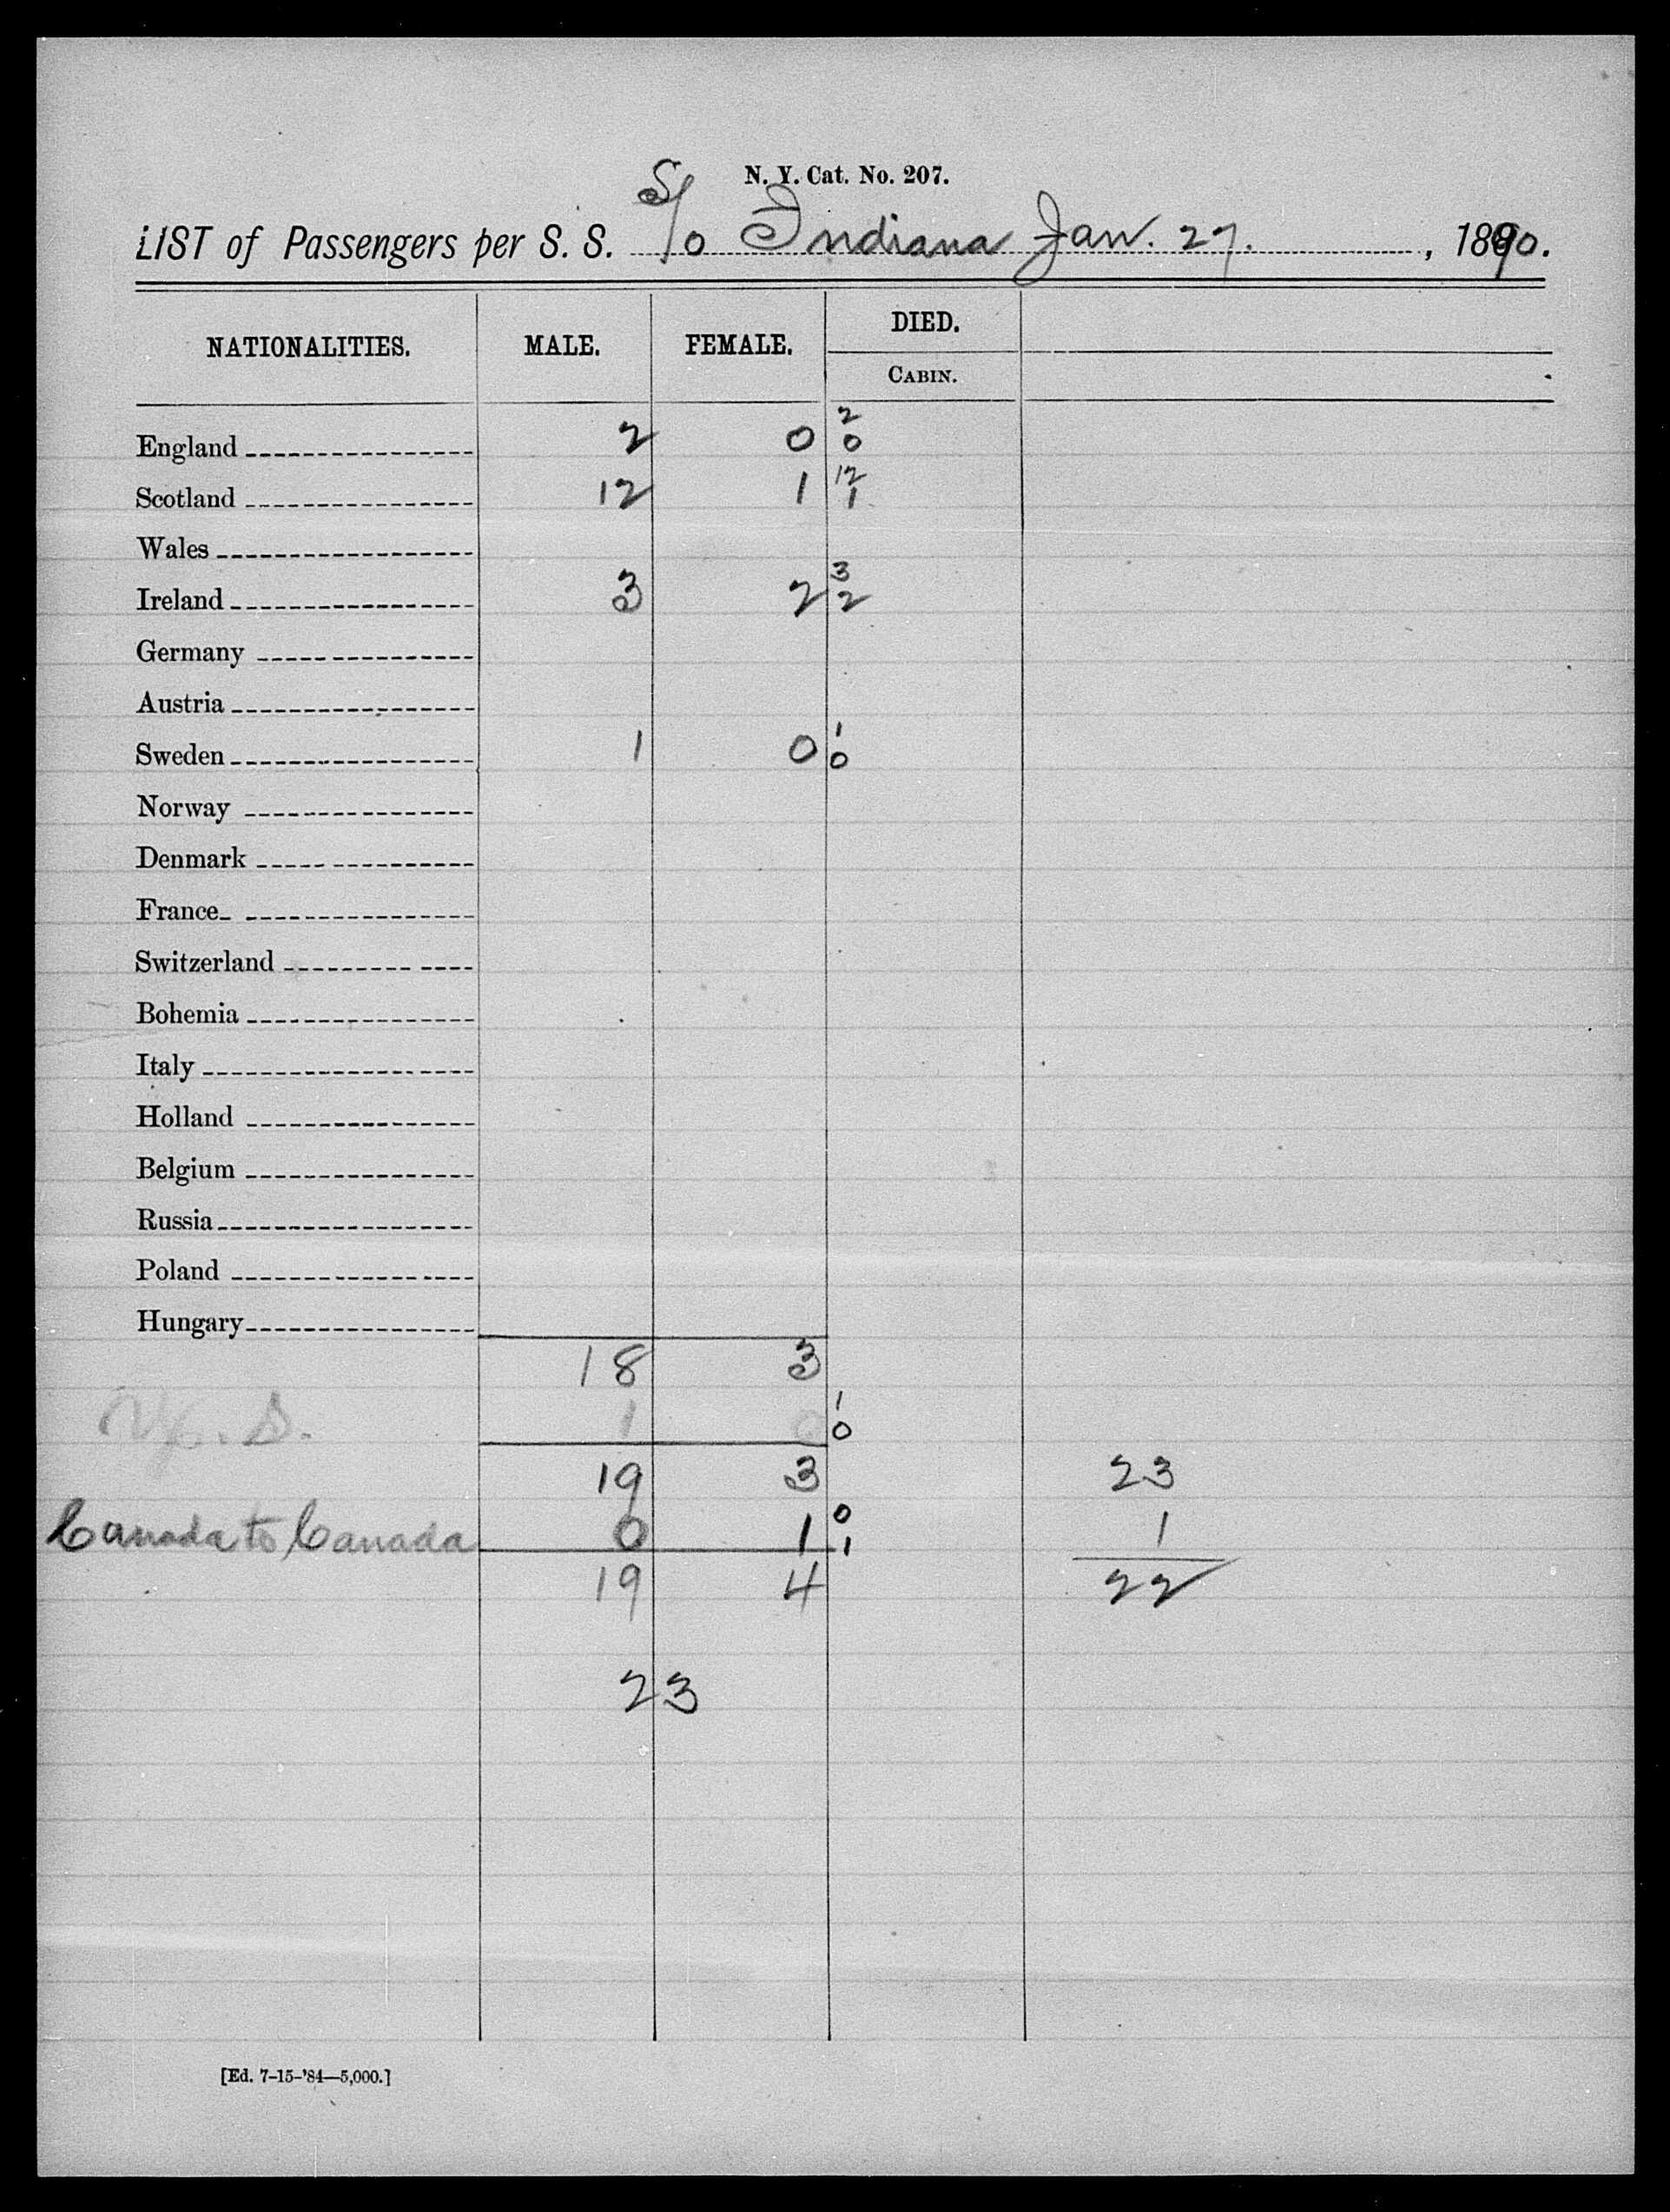 N. Y. Cat. No. 207.
LIST of Passengers per S. S. S/o Indiana Jan. 27. , 1890.
NATIONALITIES. MALE. FEMALE. DIED.
CABIN.
England 2 0 2 0
Scotland 12 1 12 1
Wales
Ireland 3 2 3 2
Germany
Austria
Sweden 1 0 1 0
Norway
Denmark
France
Switzerland
Bohemia
Italy
Holland
Belgium
Russia
Poland
Hungary
18 3
U. S. 1 0 1 0
19 3 23
Canada to Canada 0 1 0 1 1
19 4 22
23
[Ed. 7-15-'84—5,000.]